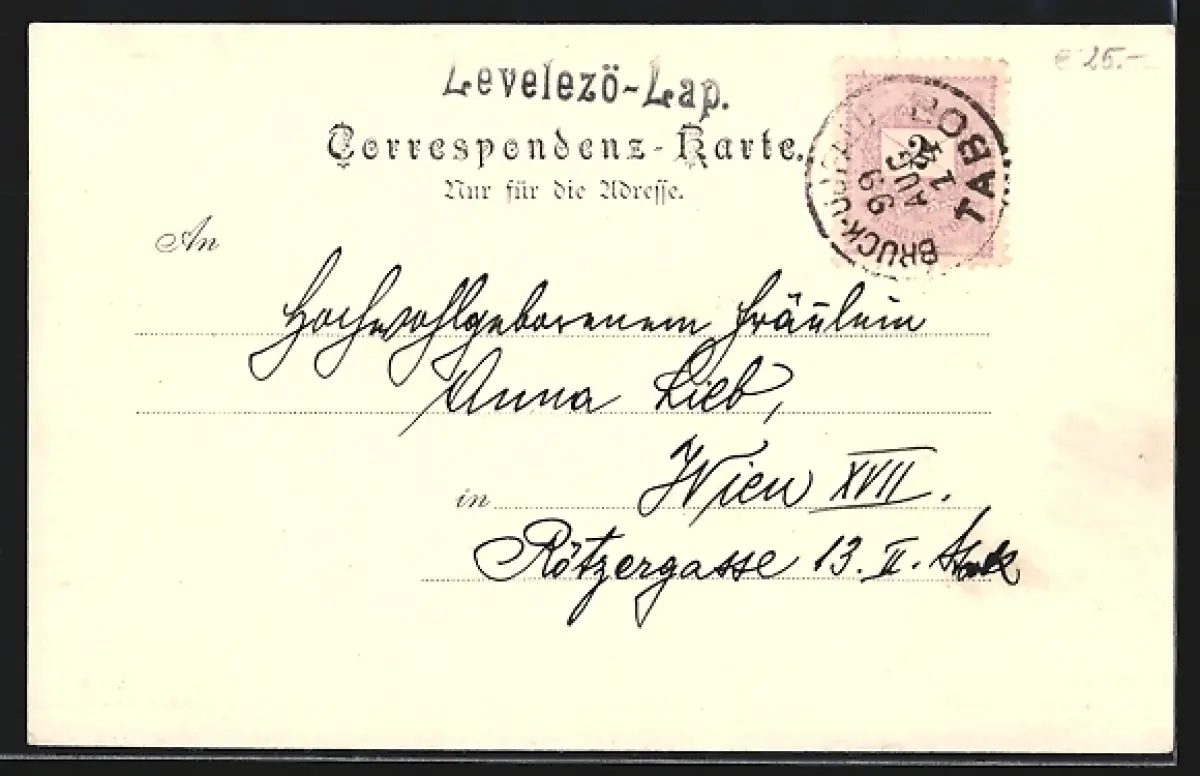 € 25.-
Levelezö-Lap.
Correspondenz-Karte.
Nur für die Adresse.
BRUCK-UJFALU TABOR
1
AUG
99
An
Hochwohlgeborenem Fräulein
Anna Lieb,
in Wien XVII.
Rötzergasse 13. II. Stock